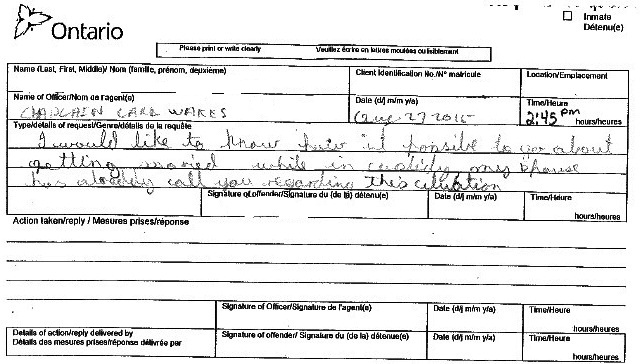 Ontario
Inmate
Détenu(e)
Please print or write clearly Veuillez écrire en lettres moulées ou lisiblement
Name (Last, First, Middle)/ Nom (famille, prénom, deuxième) Client Identification No./N° matricule Location/Emplacement
Name of Officer/Nom de l'agent(e) Date (d/j m/m y/a) Time/Heure
CHAPLAIN CARL WAKES Aug 27 2015 2:45 pm hours/heures
Type/details of request/Genre/détails de la requête
I would like to know how it ponsible to go about
getting maried while in custidy my spouse
has alreddy call you regarding this cituation
Signature of offender/Signature du (de la) détenu(e) Date (d/j m/m y/a) Time/Heure
hours/heures
Action taken/reply / Mesures prises/réponse
Signature of Officer/Signature de l'agent(e) Date (d/j m/m y/a) Time/Heure
hours/heures
Details of action/reply delivered by Signature of offender/ Signature du (de la) détenue(e) Date (d/j m/m y/a) Time/Heure
Détails des mesures prises/réponse délivrée par hours/heures